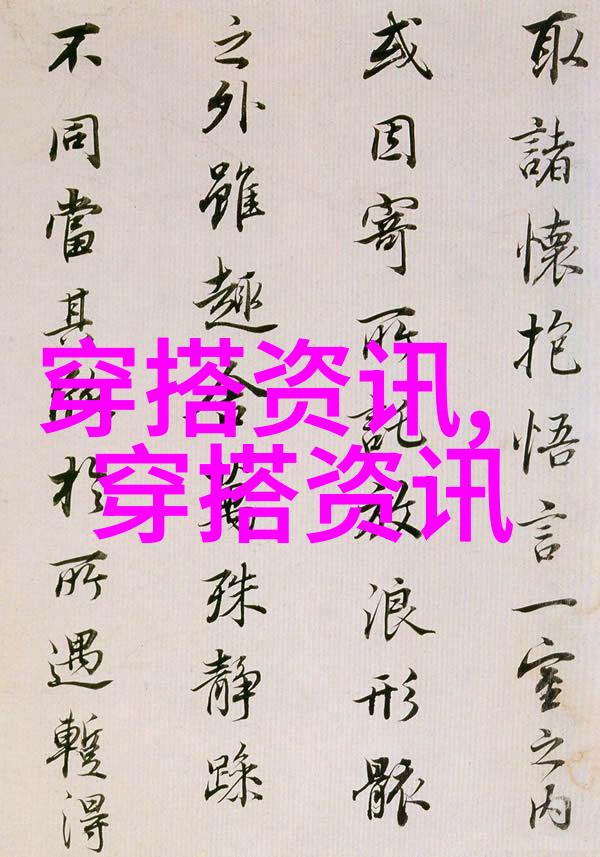 取諸懷抱悟言一室之内
或因寄所託放浪形骸
之外雖趣舍萬殊靜躁
不同當其欣於所遇蹔得
穿搭资讯,
穿搭资讯